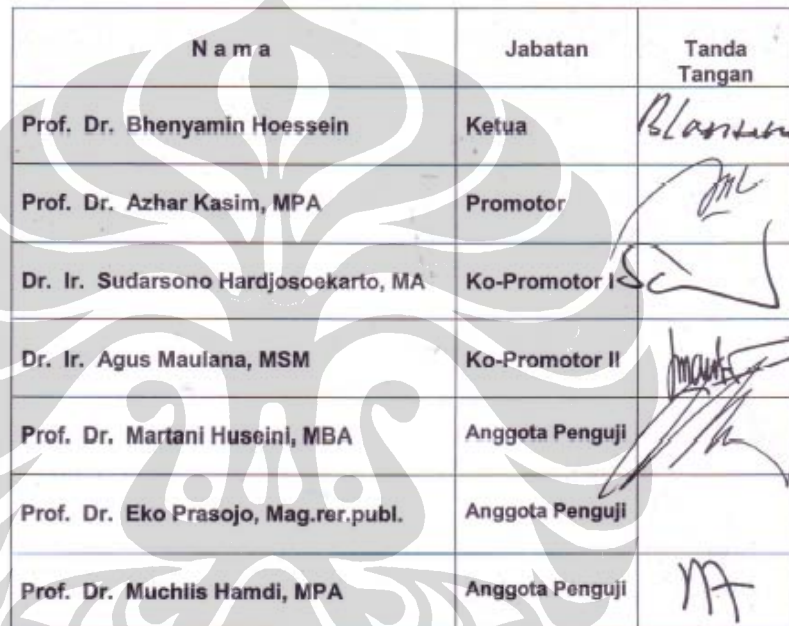 N a m a Jabatan Tanda Tangan
Prof. Dr. Bhenyamin Hoessein Ketua
Prof. Dr. Azhar Kasim, MPA Promotor
Dr. Ir. Sudarsono Hardjosoekarto, MA Ko-Promotor I
Dr. Ir. Agus Maulana, MSM Ko-Promotor II
Prof. Dr. Martani Huseini, MBA Anggota Penguji
Prof. Dr. Eko Prasojo, Mag.rer.publ. Anggota Penguji
Prof. Dr. Muchlis Hamdi, MPA Anggota Penguji